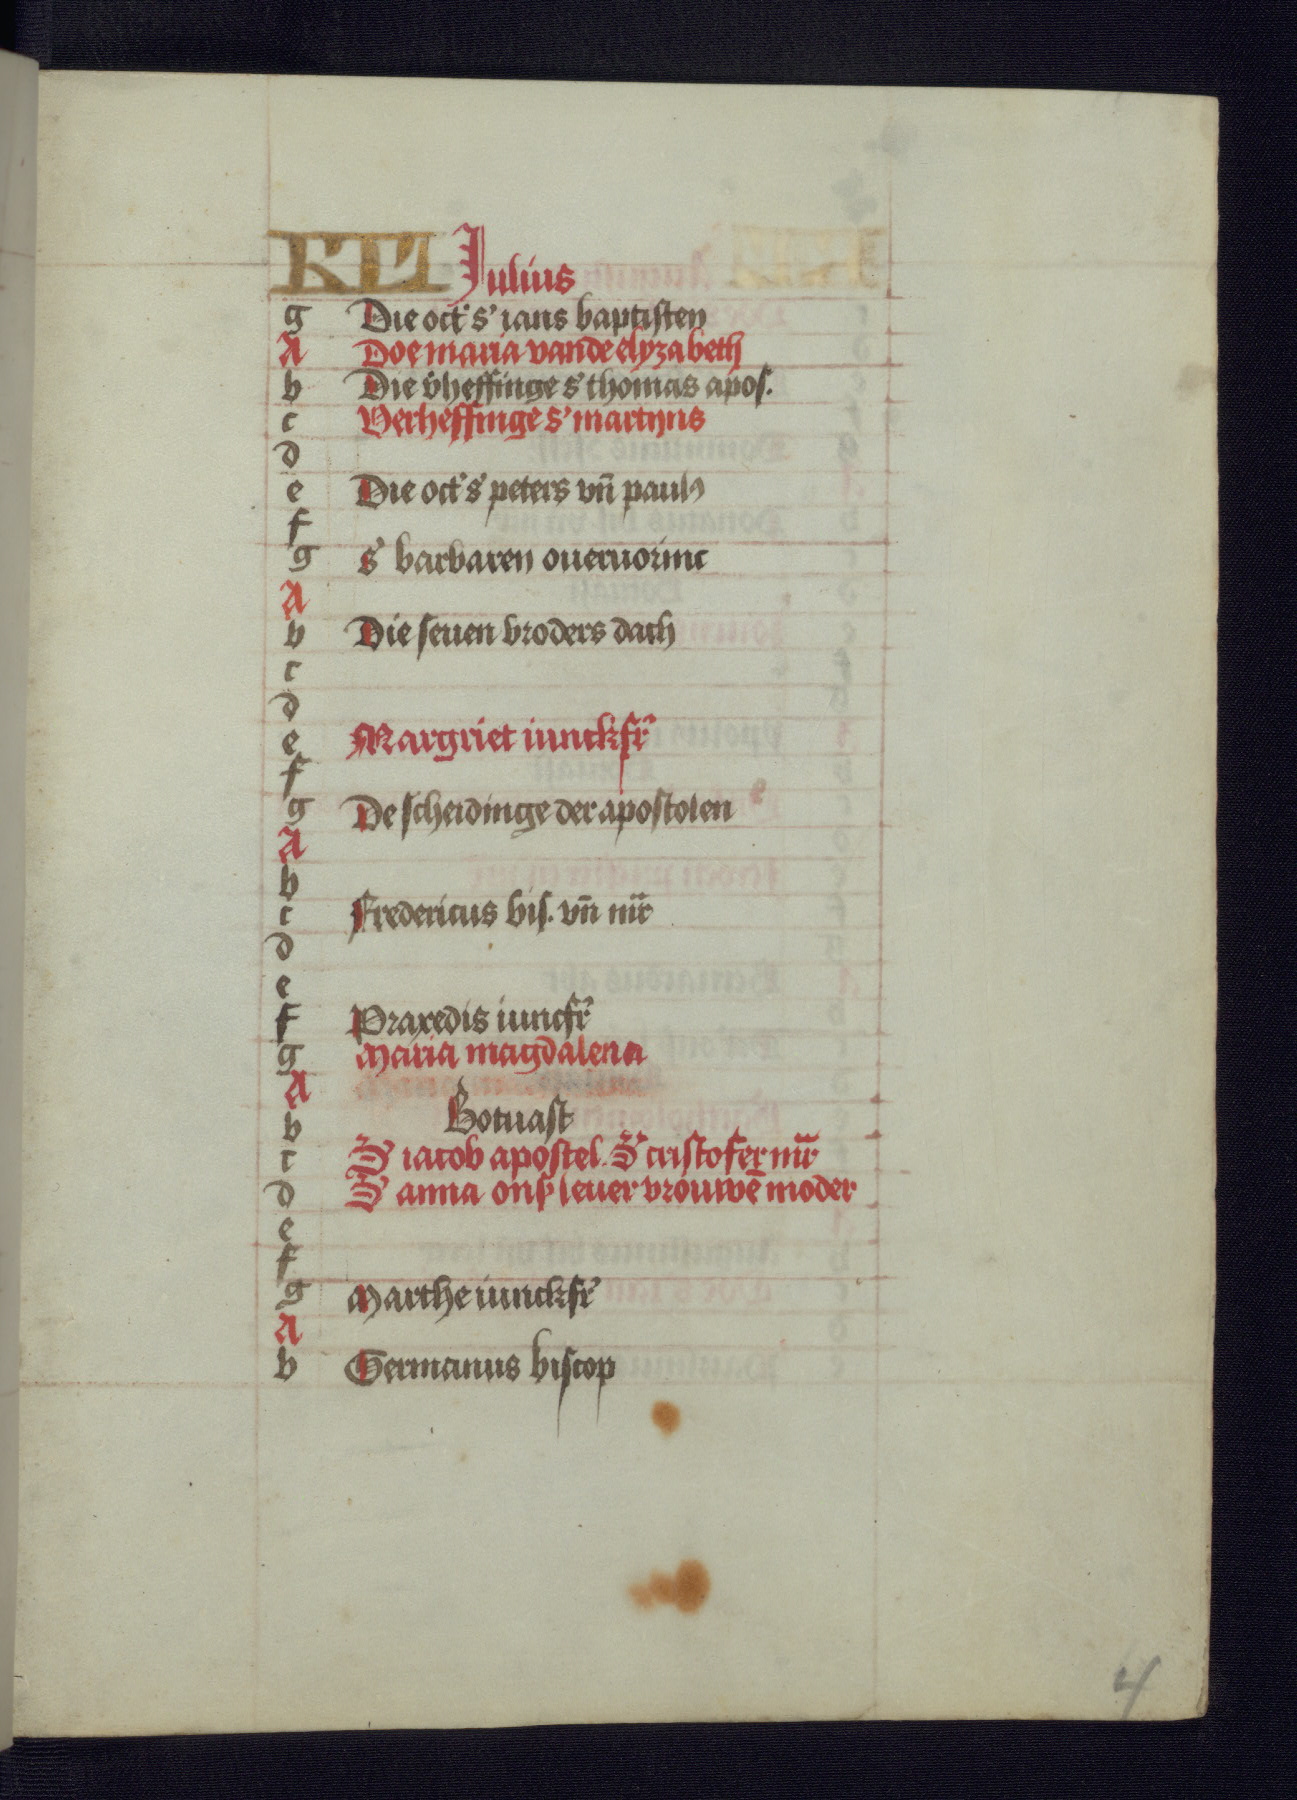 KL Iulius
g Die oct' s' ians baptisten
A Doe maria vande elyzabeth
b Die v'heffinge s' thomas apos.
c Verheffinge s' martyns
d
e Die oct' s' peters vn̄ pauls
f
g s' barbaren oueruorinc
A
b Die seuen broders dach
c
d
e Margriet iunckfr'
f
g De scheidinge der apostolen
A
b
c Fredericus bis. vn̄ mr̄
d
e
f Praxedis iuncfr'
g Maria magdalena
A
b Botuast
c S' iacob apostel. S' cristofer mr̄
d S' anna ons leuer vrouwē moder
e
f
g Marthe iunckfr'
A
b Germanus biscop
4